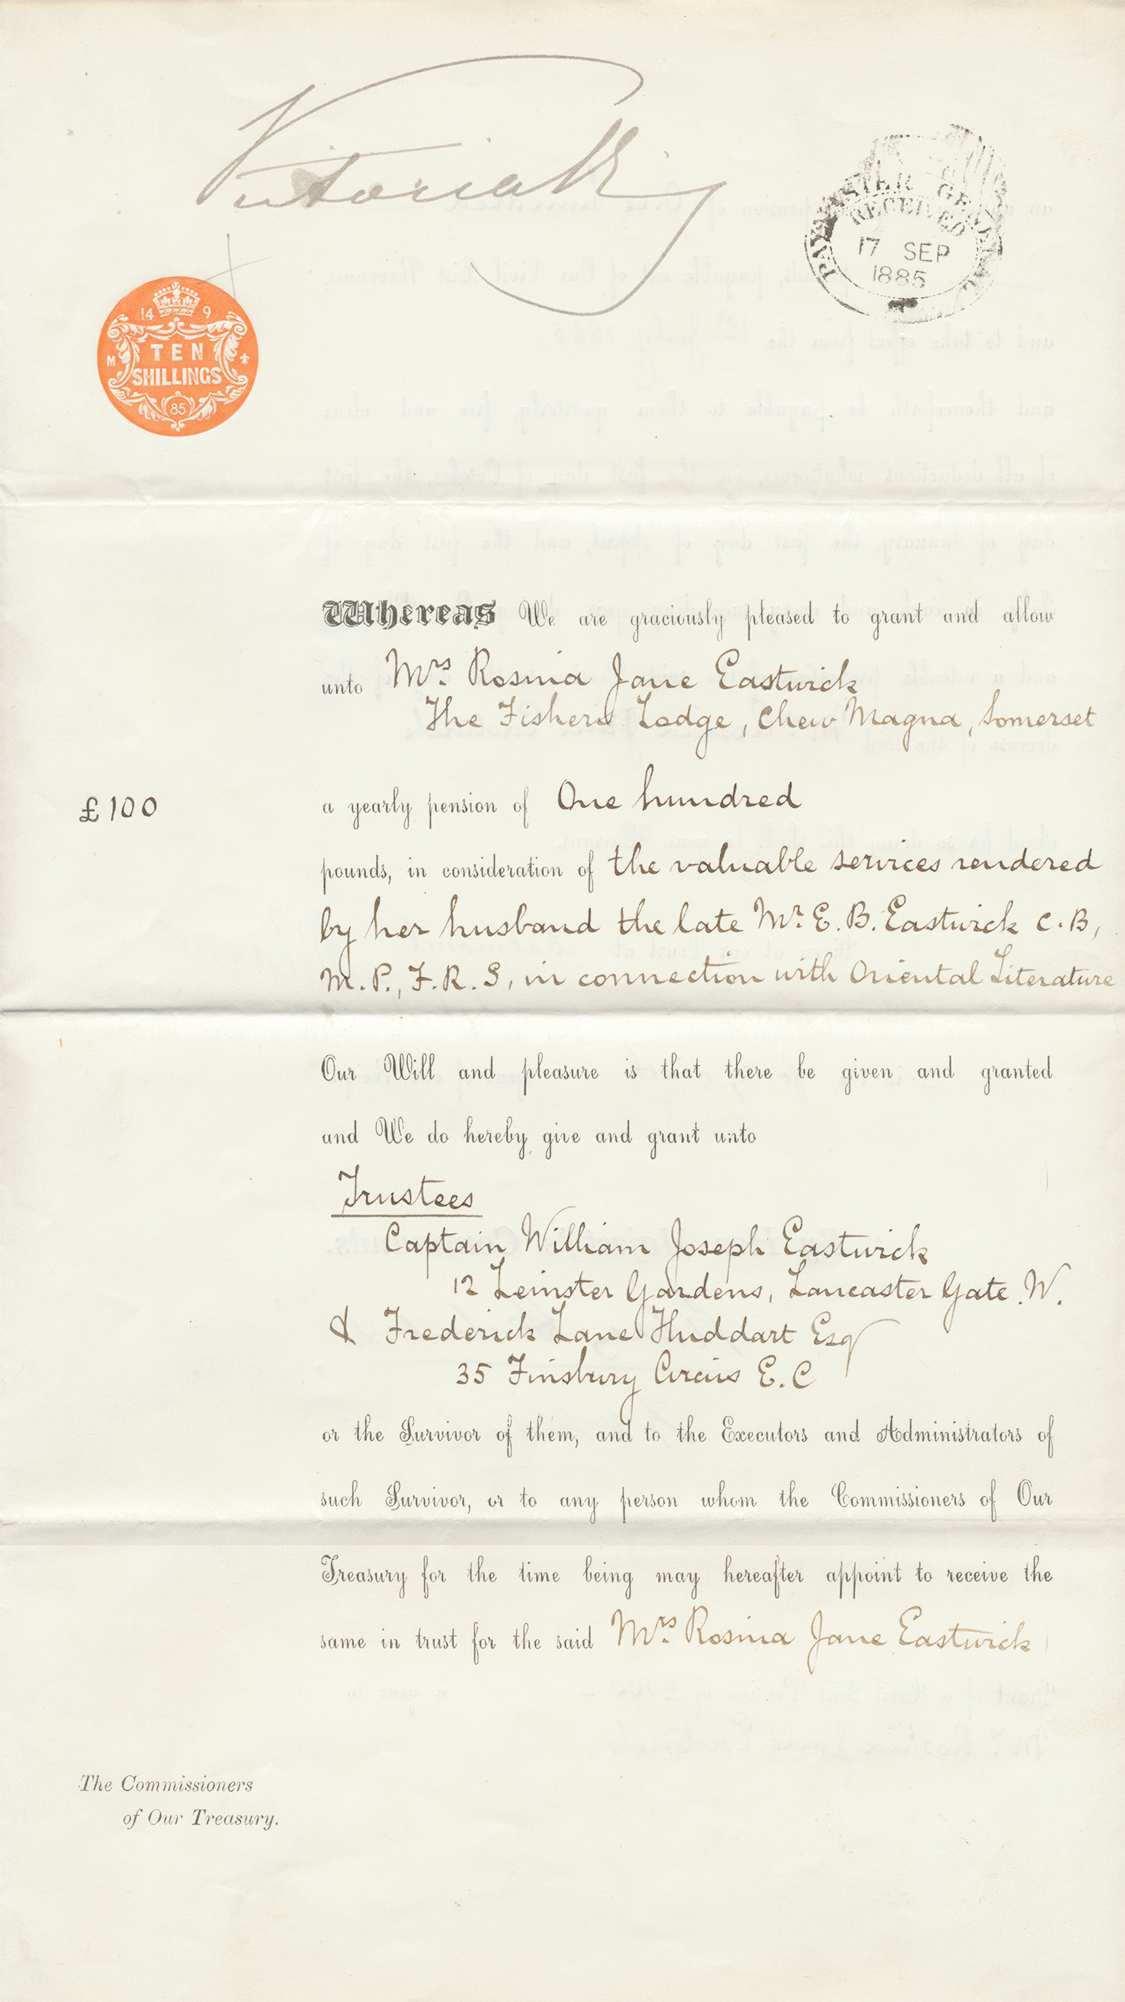 Victoria R
PAYMASTER GENERAL
RECEIVED
17 SEP
1885
14 9
M
TEN
SHILLINGS
85
Whereas We are graciously pleased to grant and allow
unto Mrs. Rosina Jane Eastwick
The Fishers Lodge, Chew Magna, Somerset
£100
a yearly pension of One hundred
pounds, in consideration of the valuable services rendered
by her husband the late Mr. E. B. Eastwick C.B,
M.P., F.R.S, in connection with Oriental Literature
Our Will and pleasure is that there be given and granted
and We do hereby give and grant unto
Trustees
Captain William Joseph Eastwick
12 Leinster Gardens, Lancaster Gate. W.
& Frederick Lane Huddart Esq
35 Finsbury Circus E.C
or the Survivor of them, and to the Executors and Administrators of
such Survivor, or to any person whom the Commissioners of Our
Treasury for the time being may hereafter appoint to receive the
same in trust for the said Mrs. Rosina Jane Eastwick
The Commissioners
of Our Treasury.